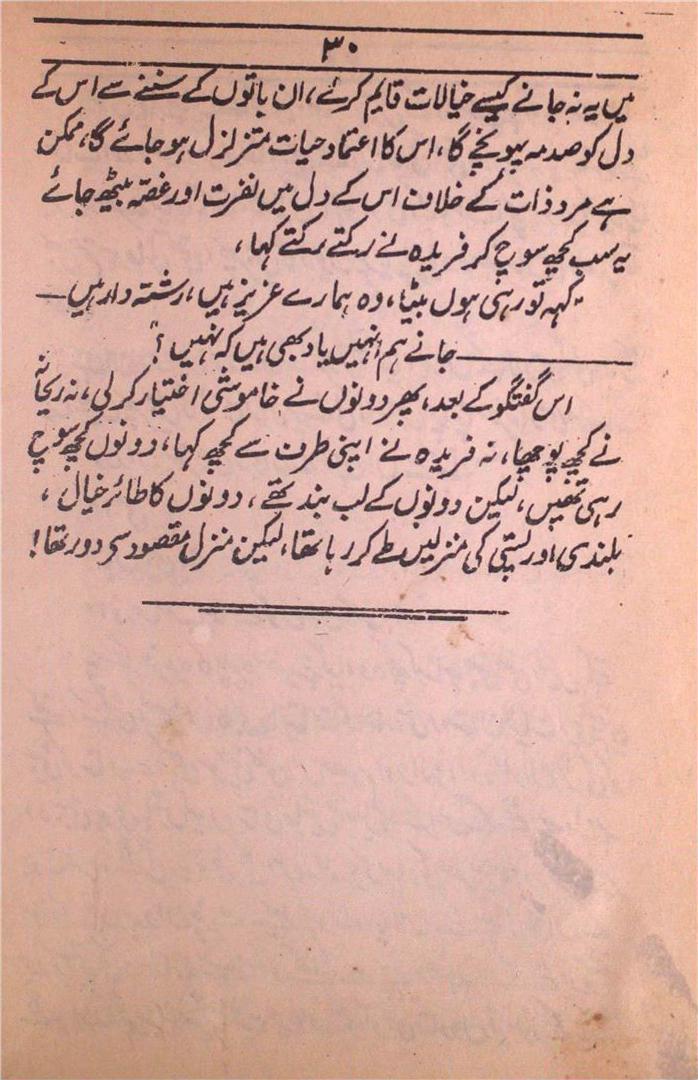 ۳۰
میں یہ نہ جانے کیسے خیالات قایم کرئے، ان باتوں کے سننے سے اس کے
دل کو صدمہ پہونچے گا، اس کا اعتماد حیات متزلزل ہو جائے گا، ممکن
ہے مرد ذات کے خلاف اس کے دل میں نفرت اور غصّہ بیٹھ جائے
یہ سب کچھ سوچ کر فریدہ نے رکتے رکتے کہا،
"کہہ تو رہی ہوں بیٹا، وہ ہمارے عزیز ہیں، رشتہ دار ہیں —
—— جانے ہم انہیں یاد بھی ہیں کہ نہیں؟"
اس گفتگو کے بعد، پھر دونوں نے خاموشی اختیار کر لی، نہ ریحانہ
نے کچھ پوچھا، نہ فریدہ نے اپنی طرف سے کچھ کہا، دونوں کچھ سوچ
رہی تھیں، لیکن دونوں کے لب بند تھے، دونوں کا طائر خیال،
بلندی اور پستی کی منزلیں طے کر رہا تھا، لیکن منزل مقصود سے دور تھا!